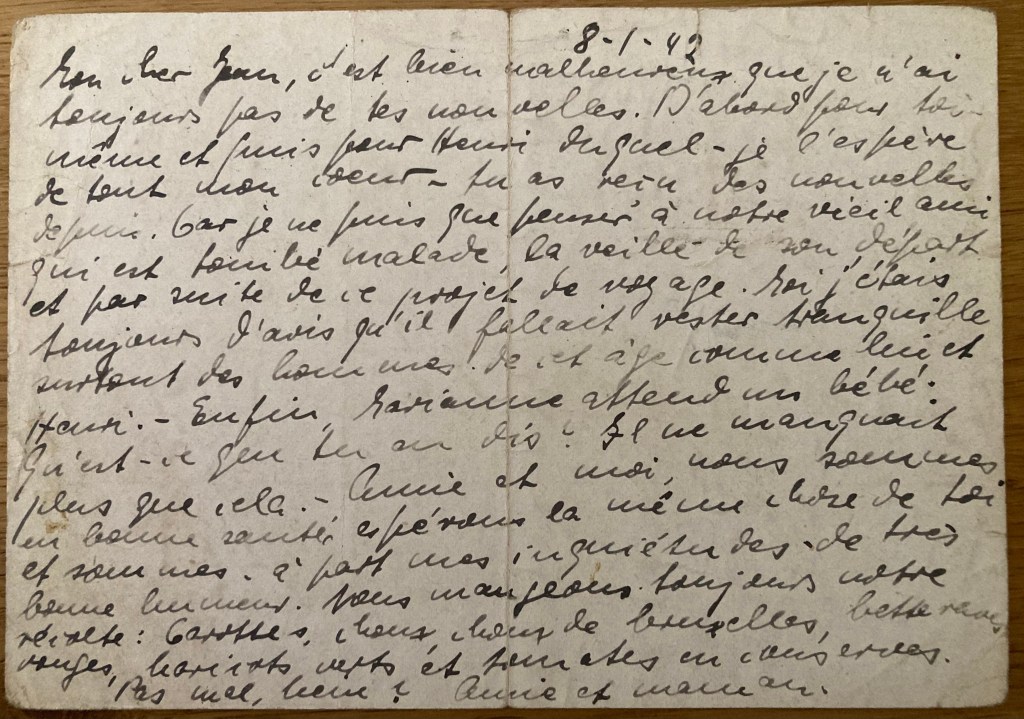 8-1-42
Mon cher Jean, c'est bien malheureux que je n'ai
toujours pas de tes nouvelles. D'abord pour toi-
même et puis pour Henri duquel - je l'espère
de tout mon coeur - tu as reçu des nouvelles
depuis. Car je ne puis que penser à notre vieil ami
qui est tombé malade, la veille de son départ
et par suite de ce projet de voyage. Moi j'étais
toujours d'avis qu'il fallait rester tranquille
surtout des hommes de cet âge comme lui et
Henri. - Enfin, Marianne attend un bébé.
Qu'est-ce que tu en dis? Il ne manquait
plus que cela. - Annie et moi, nous sommes
en bonne santé, espérons la même chose de toi
et sommes - à part mes inquiétudes - de très
bonne humeur. Nous mangeons toujours notre
récolte: Carottes, choux, choux de bruxelles, betteraves
rouges, haricots verts et tomates en conserves.
Pas mal, hein? Annie et maman.